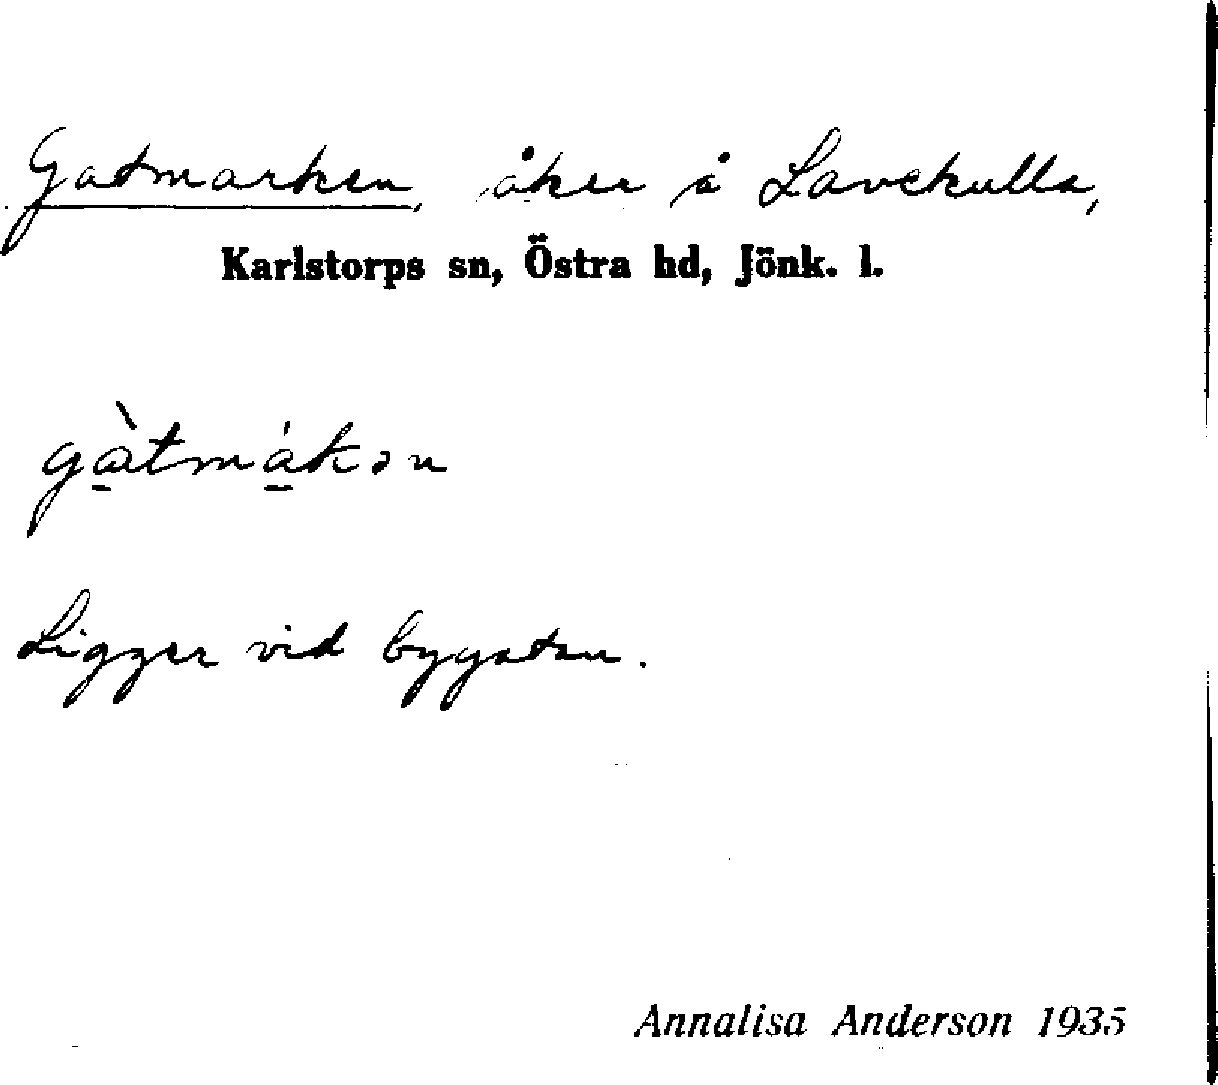 Gatmarken, åker å Lavekulla,
Karlstorps sn, Östra hd, Jönk. l.
gàtmákən
Ligger vid bygatan.
Annalisa Anderson 1935